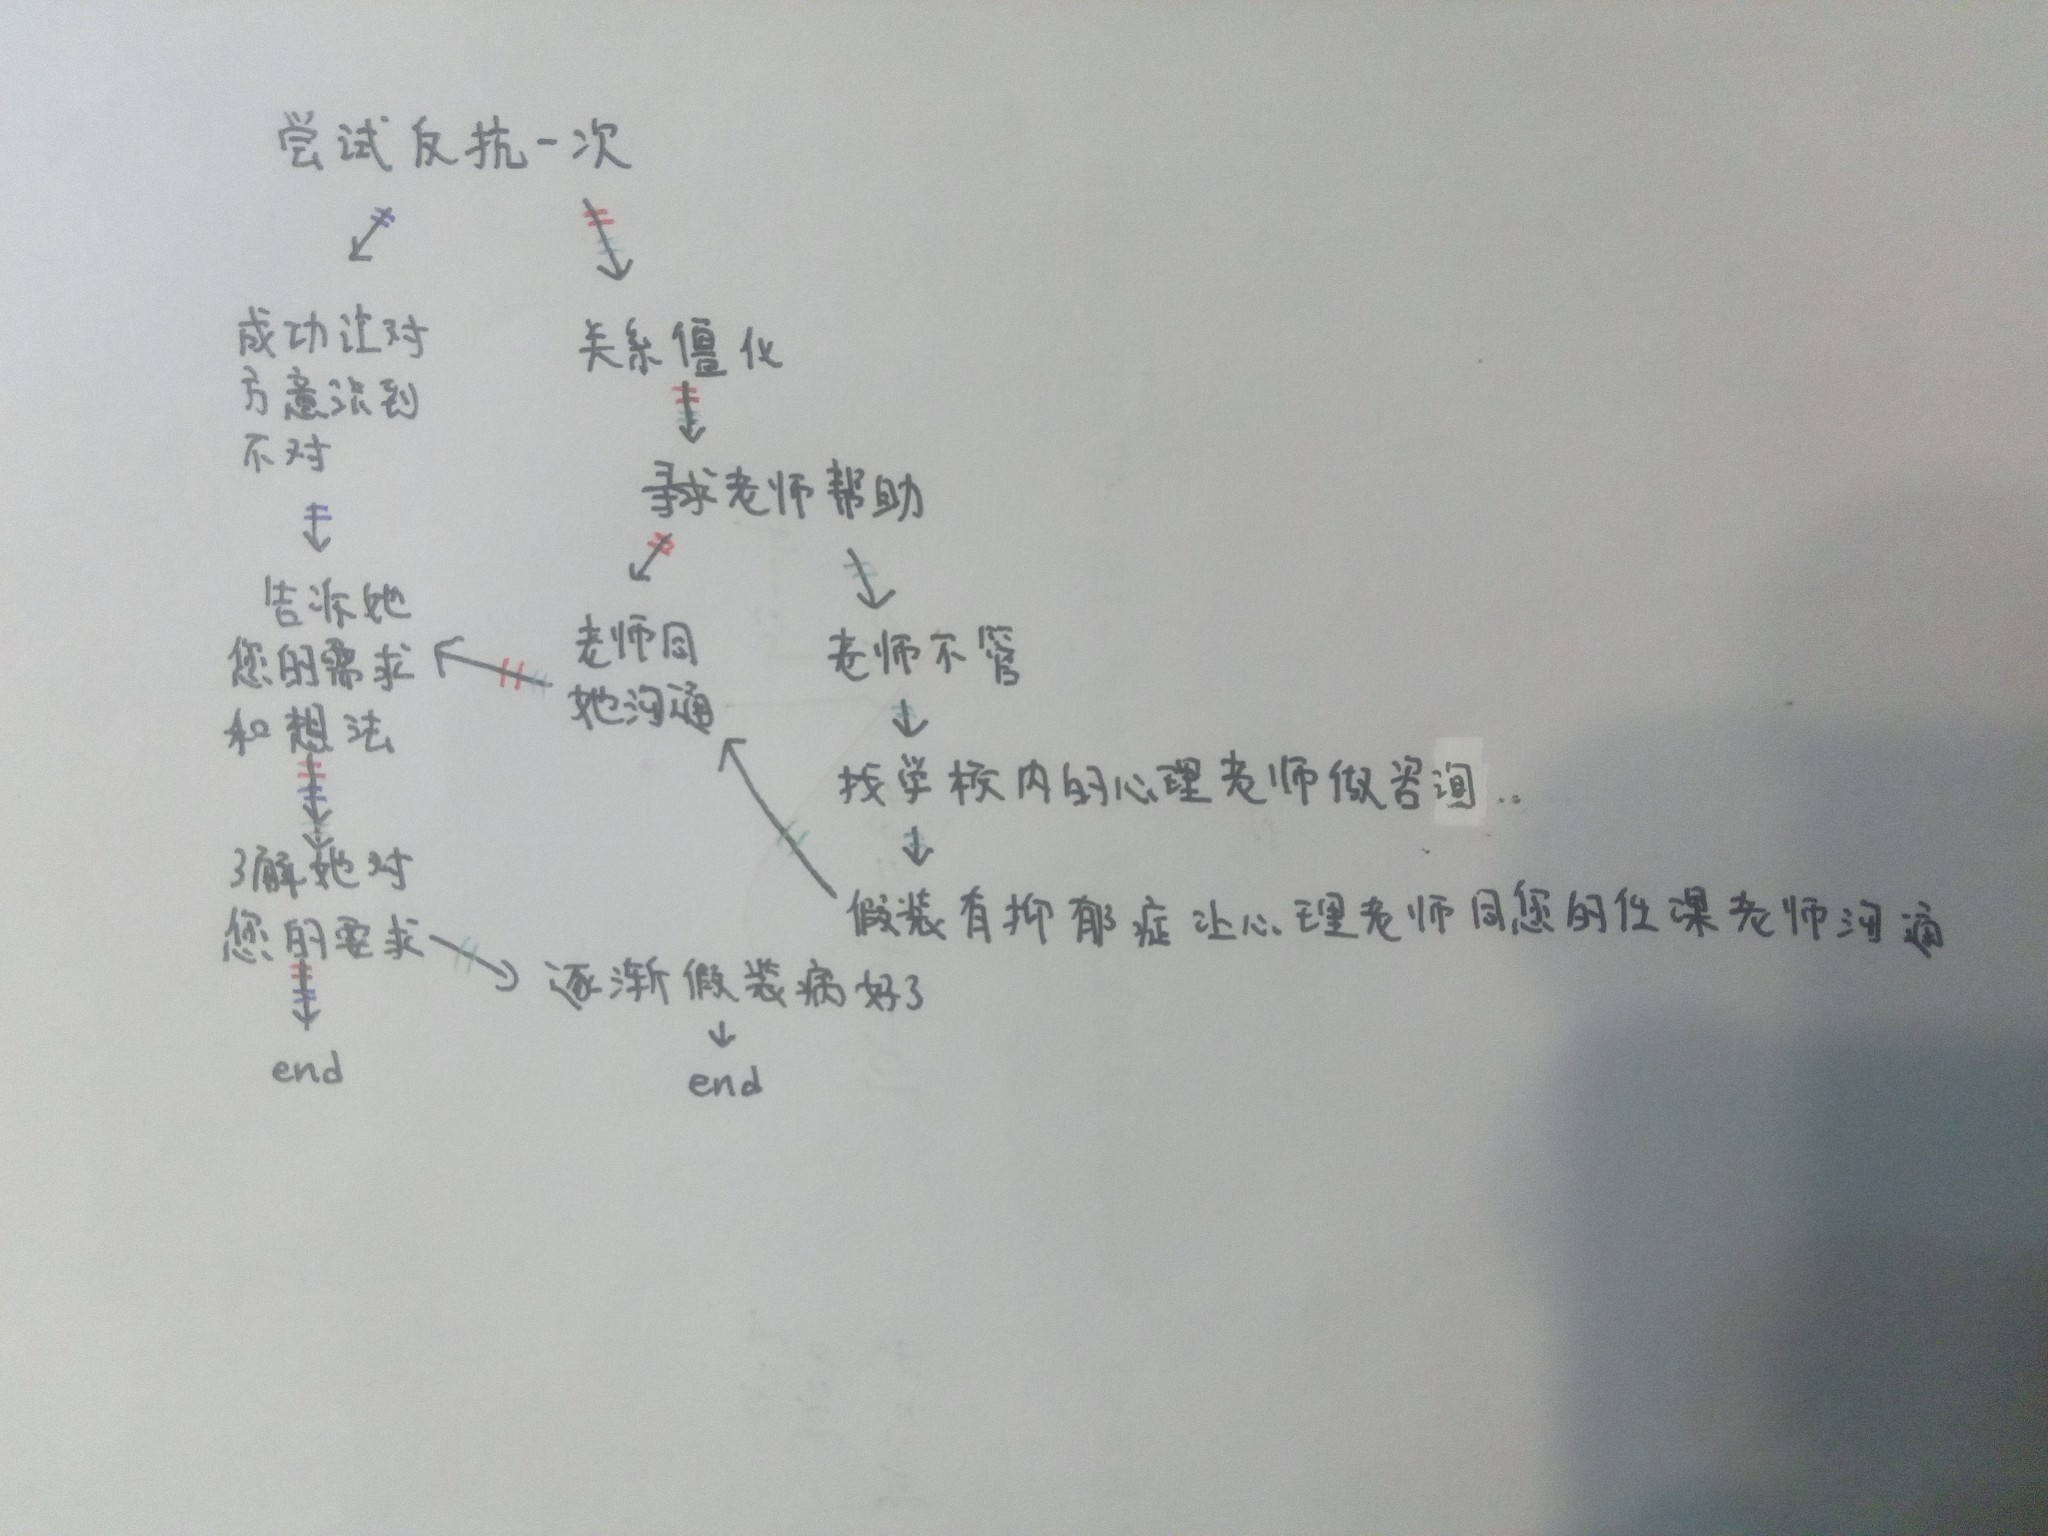 尝试反抗一次
成功让对
方意识到
不对
关系僵化
寻求老师帮助
告诉她
您的需求
和想法
老师同
她沟通
老师不管
找学校内的心理老师做咨询..
假装有抑郁症让心理老师同您的任课老师沟通
了解她对
您的要求
逐渐假装病好了
end
end